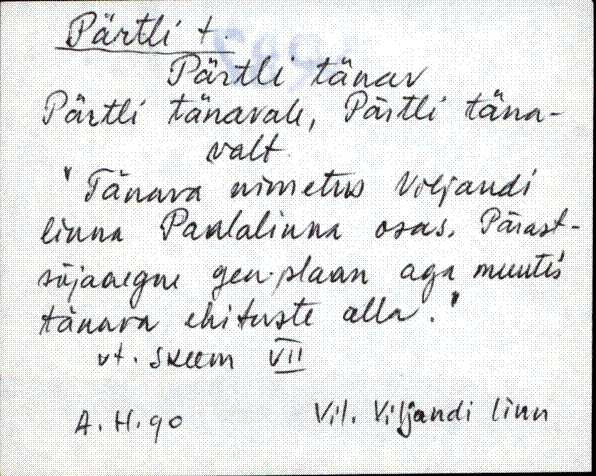 Pärtli t.
Pärtli tänav
Pärtli tänavale, Pärtli täna-
valt.
"Tänava nimetus Viljandi
linna Paalalinna osas. Pärast-
sõjaaegne gen.plaan aga muutis
tänava ehituste alla."
vt. skeem VII
A. H. 90 Vil. Viljandi linn